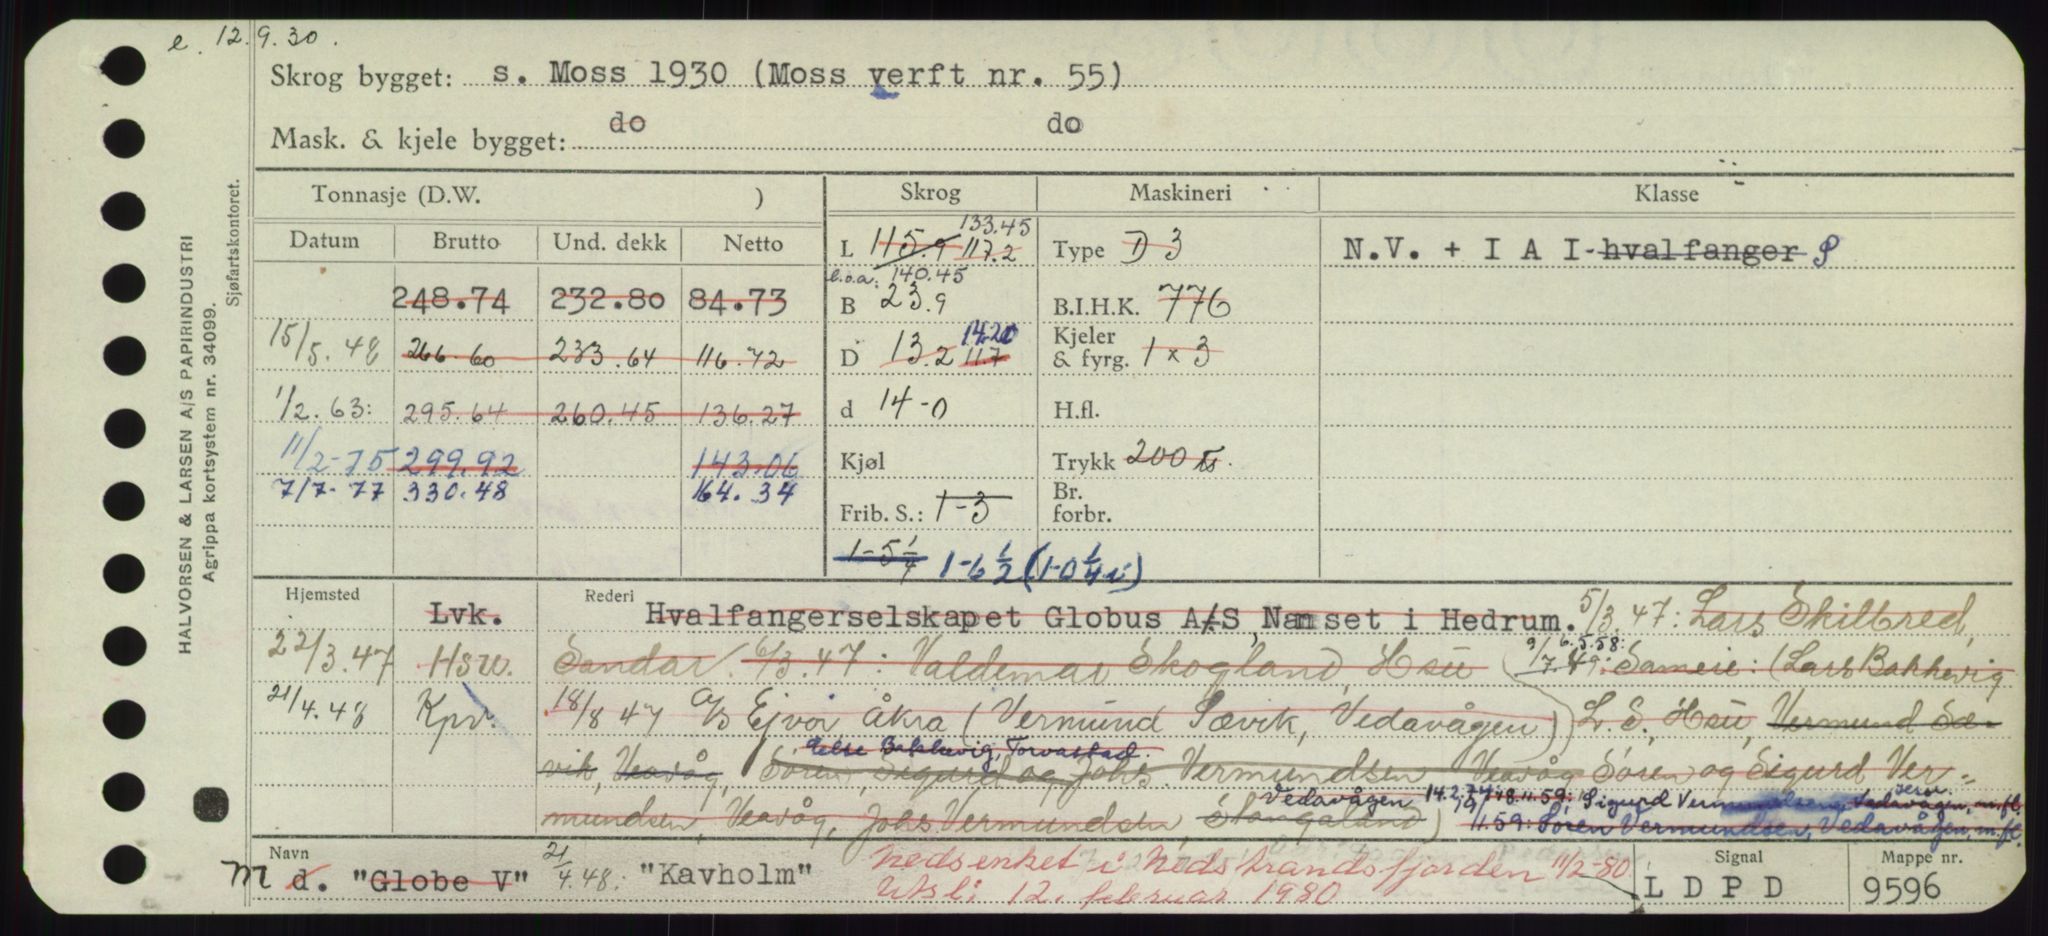 e. 12.9.30.
Skrog bygget: s. Moss 1930 (Moss verft nr. 55)
Mask. & kjele bygget: do do
HALVORSEN & LARSEN A/S PAPIRINDUSTRI
Agrippa kortsystem nr. 34099.
Sjøfartskontoret.
Tonnasje (D.W. ) Skrog Maskineri Klasse
Datum Brutto Und. dekk Netto
L 115.9 117.2 133.45
Type D 3
N.V. + I A I-hvalfanger
l.o.a: 140.45
248.74 232.80 84.73
B 23.9
B.I.H.K. 776
15/5.48 266.60 233.64 116.72
D 13.2 11.7 14.20
Kjeler & fyrg. 1 x 3
1/2.63: 295.64 260.45 136.27
d 14-0
H.fl.
11/2-75 299.92 143.06
Kjøl
Trykk 200
7/7-77 330.48 164.34
Frib. S.: 1-3
Br. forbr.
1-5 1/4 1-6 1/2 (1-0 1/4 i)
Hjemsted Lvk. Rederi Hvalfangerselskapet Globus A/S, Nanset i Hedrum. 5/3.47: Lars Skiltred,
22/3.47 Hsu. Sandar. 6/3.47: Valdemar Skogland, Hsu (9/7.49: 6.5.58: Sameie: (Lars Bakkevig
21/4.48 Kpv. 18/8 47 A/S Ejvor Åkra (Vermund Sævik, Vedavågen) L.S., Hsu, Vermund Sæ-
Else Bakkevig, Torvastad.
vik, Veavåg, Søren, Sigurd og Johs. Vermundsen, Veavåg Søren og Sigurd Ver-
Vedavågen 14.2.74 18.11.59: Sigurd Vermundsen, Vedavågen, m.fl.
mundsen, Veavåg, Johs. Vermundsen, Stangaland) 11.59: Søren Vermundsen, Vedavågen, m.fl.
Navn Signal Mappe nr.
M d. "Globe V" 21/4.48: "Kavholm" Nedsenket i Nedstrandsfjorden 11/2-80
L D P D 9596
Utsl: 12. februar 1980